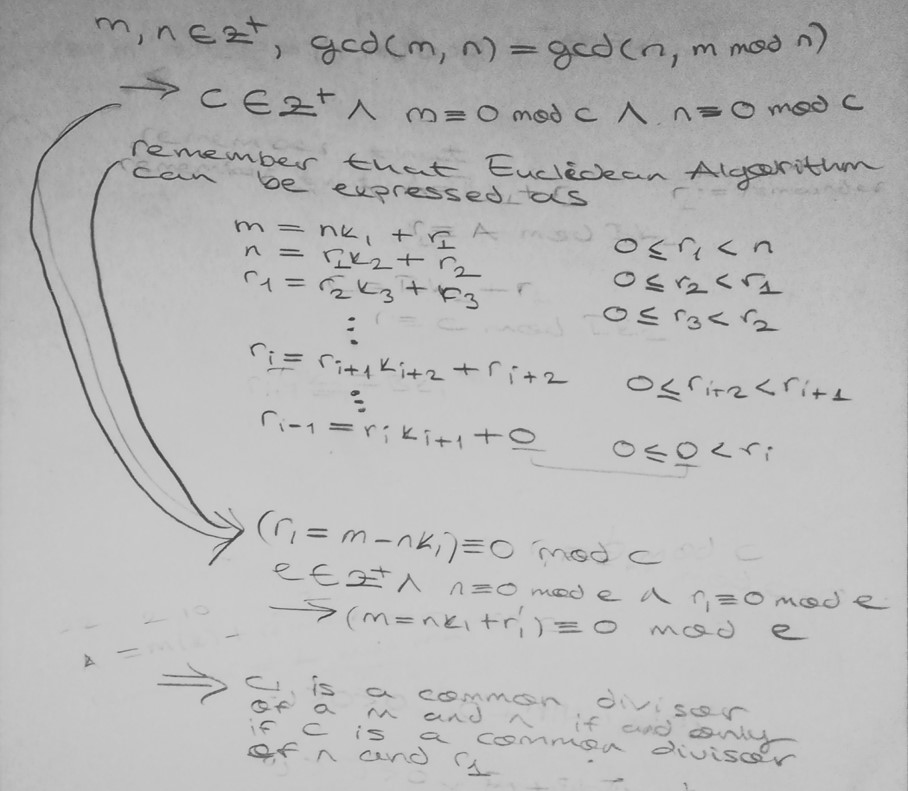 m, n ∈ Z⁺, gcd(m, n) = gcd(n, m mod n)
→ c ∈ Z⁺ ∧ m ≡ 0 mod c ∧ n ≡ 0 mod c
remember that Euclidean Algorithm
can be expressed as
m = nk₁ + r₁ 0 ≤ r₁ < n
n = r₁k₂ + r₂ 0 ≤ r₂ < r₁
r₁ = r₂k₃ + r₃ 0 ≤ r₃ < r₂
⋮
rᵢ = rᵢ₊₁kᵢ₊₂ + rᵢ₊₂ 0 ≤ rᵢ₊₂ < rᵢ₊₁
⋮
rᵢ₋₁ = rᵢkᵢ₊₁ + 0 0 ≤ 0 < rᵢ
(r₁ = m - nk₁) ≡ 0 mod c
e ∈ Z⁺ ∧ n ≡ 0 mod e ∧ r₁ ≡ 0 mod e
→ (m = nk₁ + r₁) ≡ 0 mod e
⇒ c is a common divisor
of a m and n if and only
if c is a common divisor
of n and r₁